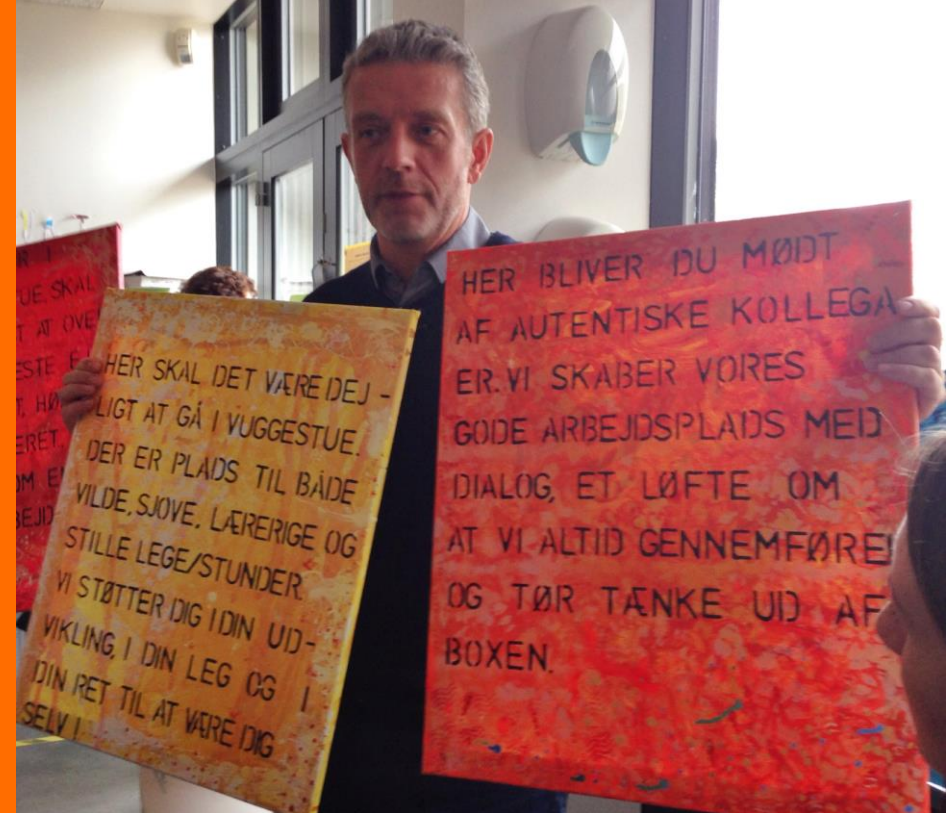 HER SKAL DET VÆRE DEJ-
LIGT AT GÅ I VUGGESTUE.
DER ER PLADS TIL BÅDE
VILDE, SJOVE, LÆRERIGE OG
STILLE LEGE/STUNDER.
VI STØTTER DIG I DIN UD-
VIKLING, I DIN LEG OG I
DIN RET TIL AT VÆRE DIG
SELV!
HER BLIVER DU MØDT
AF AUTENTISKE KOLLEGA
ER. VI SKABER VORES
GODE ARBEJDSPLADS MED
DIALOG, ET LØFTE OM
AT VI ALTID GENNEMFØRE
OG TØR TÆNKE UD AF
BOXEN.
SKAL
AT